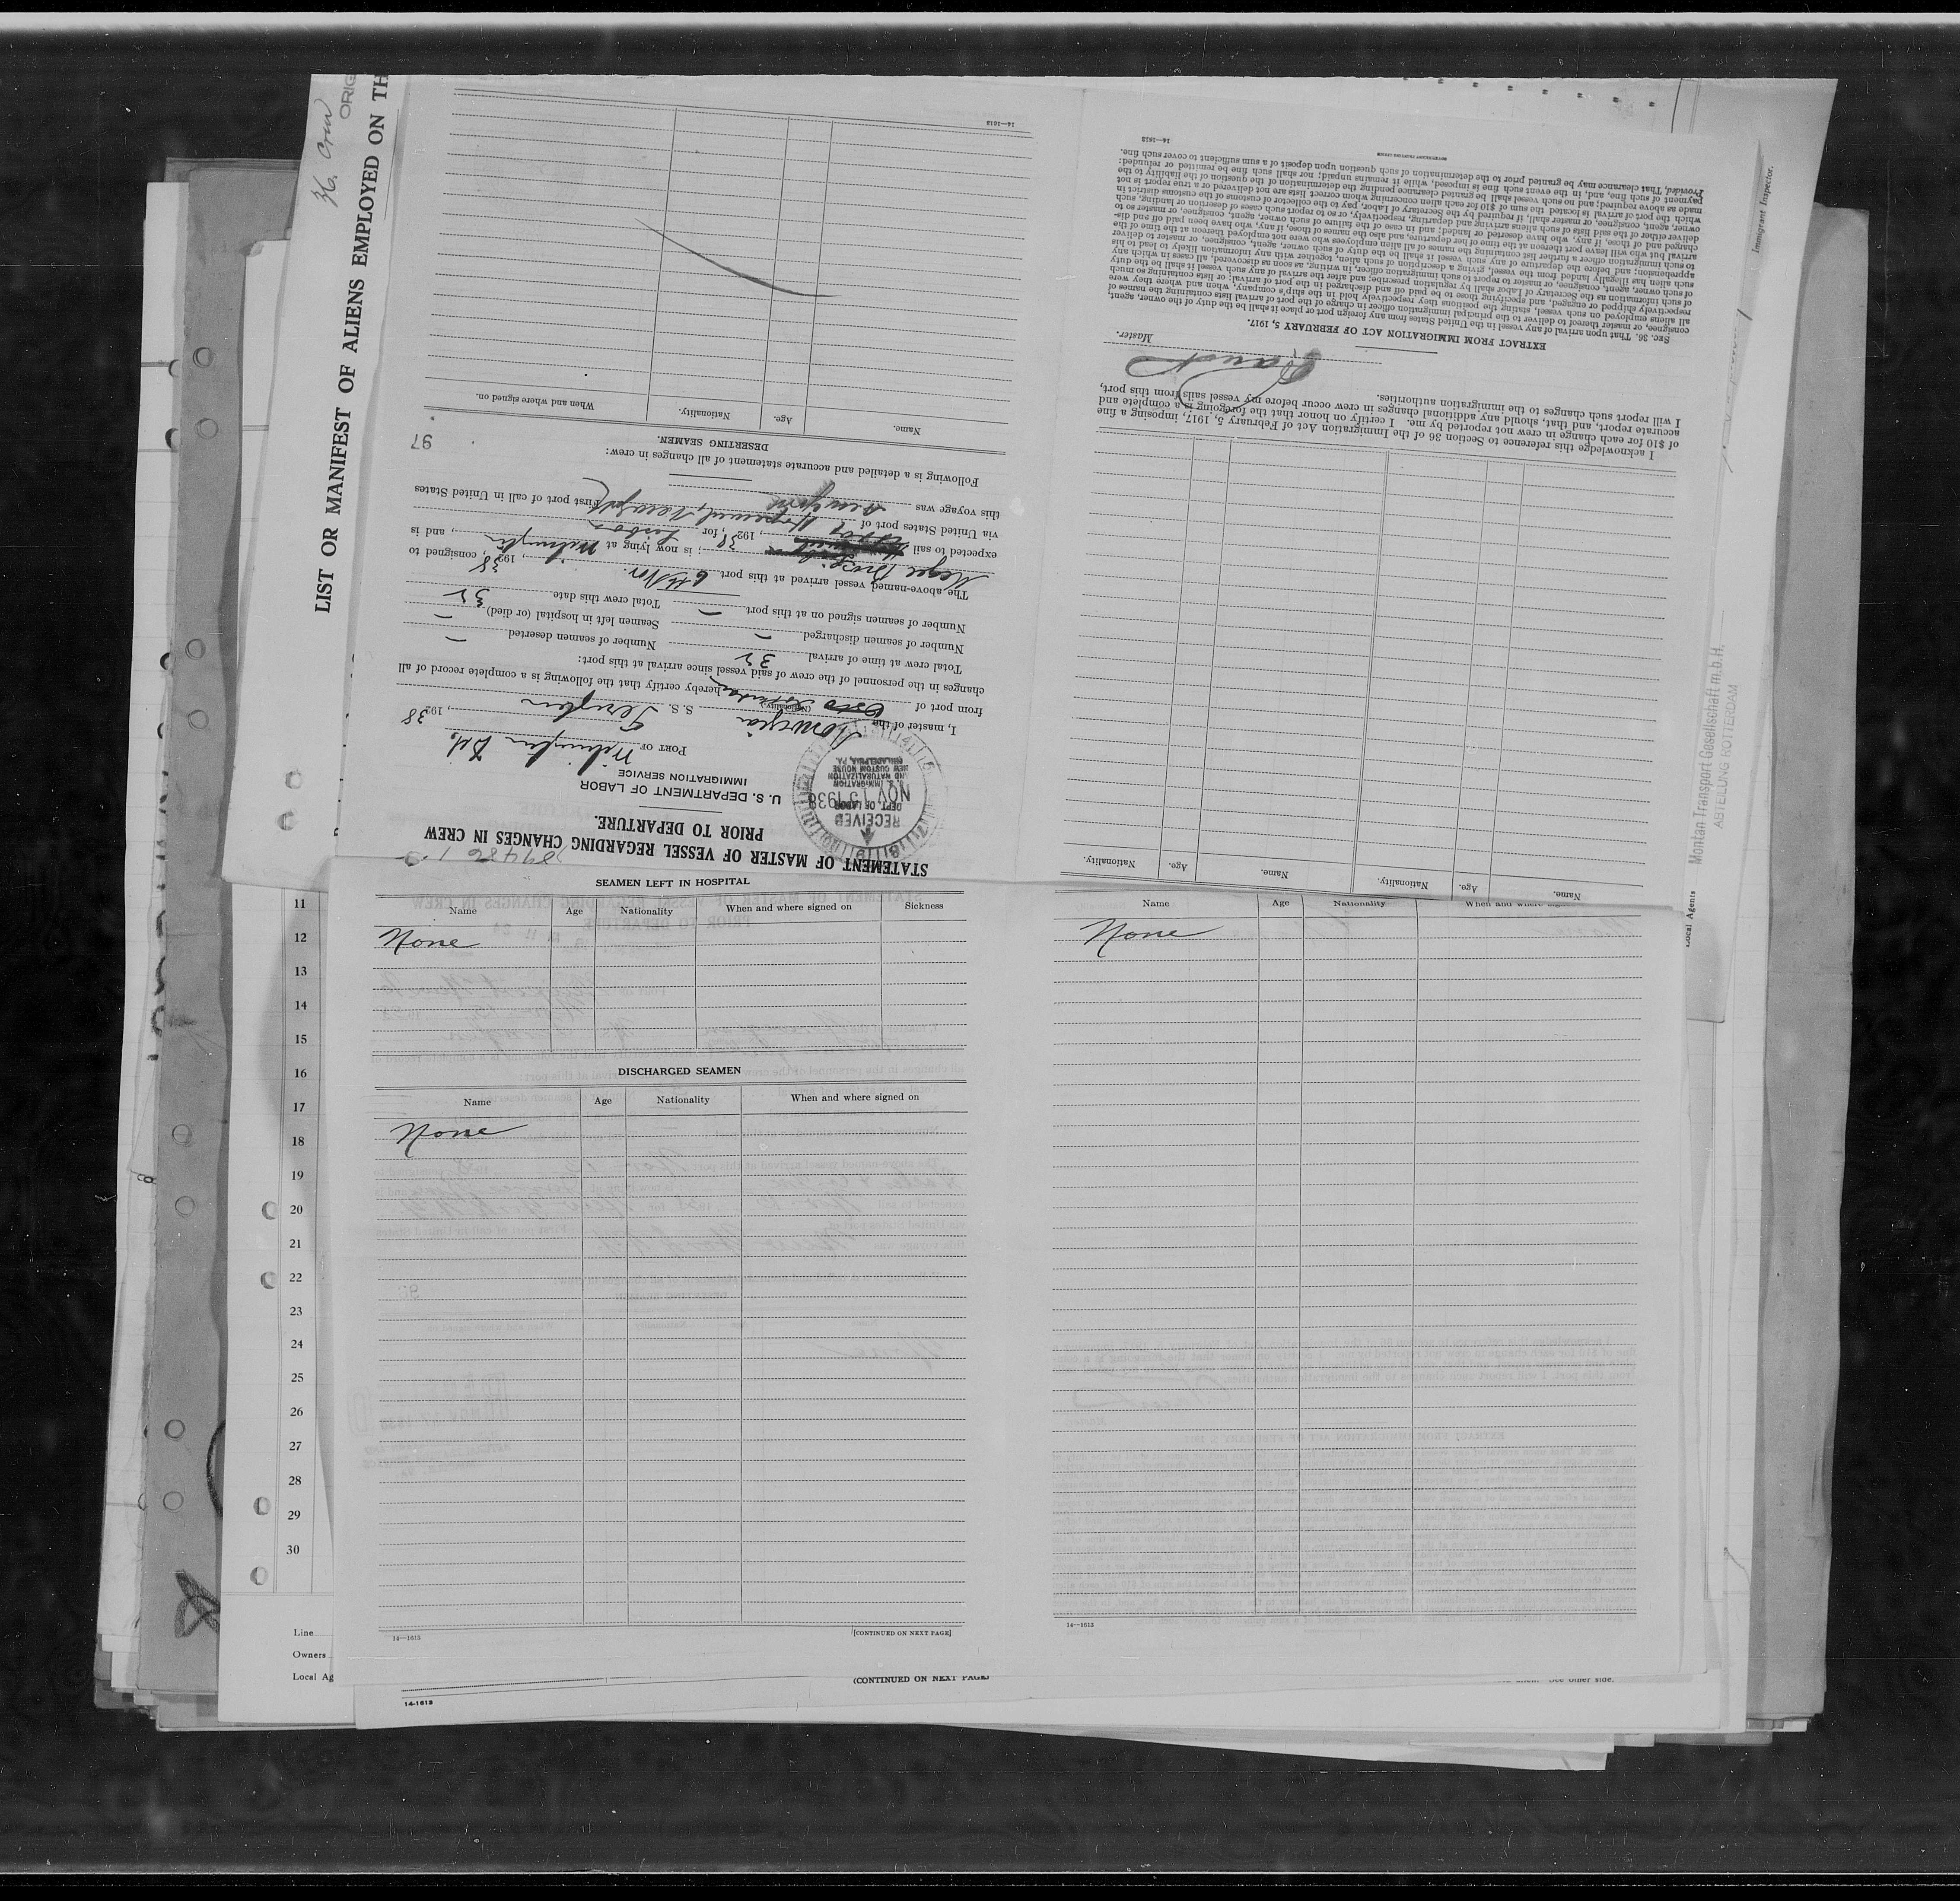 36. Crew
ORIG
LIST OR MANIFEST OF ALIENS EMPLOYED ON TH
STATEMENT OF MASTER OF VESSEL REGARDING CHANGES IN CREW
PRIOR TO DEPARTURE.
U. S. DEPARTMENT OF LABOR
IMMIGRATION SERVICE
RECEIVED
DEPT. OF LABOR
NOV 15 1938
U. S. IMMIGRATION
AND NATURALIZATION
NEW CUSTOM HOUSE
PHILADELPHIA, PA.
PORT OF Wilmington Del, , 192 38
I, master of the Norwegian (Nationality) S. S.
from port of hereby certify that the following is a complete record of all
changes in the personnel of the crew of said vessel since arrival at this port:
Total crew at time of arrival 32 Number of seamen deserted —
Number of seamen discharged — Seamen left in hospital (or died) —
Number of seamen signed on at this port — Total crew this date 32
The above-named vessel arrived at this port 6th Nov. , 192 38, consigned to
; is now lying at Wilmington , and is
expected to sail , 192 38, for Lisboa
via United States port of First port of call in United States
this voyage was
Following is a detailed and accurate statement of all changes in crew:
DESERTING SEAMEN. 97
Name. Age. Nationality. When and where signed on.
14—1613
Name. Age. Nationality. Name. Age. Nationality.
I acknowledge this reference to Section 36 of the Immigration Act of February 5, 1917, imposing a fine
of $10 for each change in crew not reported by me. I certify on honor that the foregoing is a complete and
accurate report, and that, should any additional changes in crew occur before my vessel sails from this port,
I will report such changes to the immigration authorities.
Master.
EXTRACT FROM IMMIGRATION ACT OF FEBRUARY 5, 1917.
SEC. 36. That upon arrival of any vessel in the United States from any foreign port or place it shall be the duty of the owner, agent,
consignee, or master thereof to deliver to the principal immigration officer in charge of the port of arrival lists containing the names of
all aliens employed on such vessel, stating the positions they respectively hold in the ship's company, when and where they were
respectively shipped or engaged, and specifying those to be paid off and discharged in the port of arrival; or lists containing so much
of such information as the Secretary of Labor shall by regulation prescribe; and after the arrival of any such vessel it shall be the duty
of such owner, agent, consignee, or master to report to such immigration officer, in writing, as soon as discovered, all cases in which any
such alien has illegally landed from the vessel, giving a description of such alien, together with any information likely to lead to his
apprehension; and before the departure of any such vessel it shall be the duty of such owner, agent, consignee, or master to deliver
to such immigration officer a further list containing the names of all alien employees who were not employed thereon at the time of the
arrival but who will leave port thereon at the time of her departure, and also the names of those, if any, who have been paid off and dis-
charged and of those, if any, who have deserted or landed; and in case of the failure of such owner, agent, consignee, or master so to
deliver either of the said lists of such aliens arriving and departing, respectively, or so to report such cases of desertion or landing, such
owner, agent, consignee, or master shall, if required by the Secretary of Labor, pay to the collector of customs of the customs district in
which the port of arrival is located the sum of $10 for each alien concerning whom correct lists are not delivered or a true report is not
made as above required; and no such vessel shall be granted clearance pending the determination of the question of the liability to the
payment of such fine, and, in the event such fine is imposed, while it remains unpaid; nor shall such fine be remitted or refunded:
Provided, That clearance may be granted prior to the determination of such question upon deposit of a sum sufficient to cover such fine.
14—1613
Immigrant Inspector.
Montan Transport Gesellschaft m.b.H.
ABTEILUNG ROTTERDAM
Local Agents
SEAMEN LEFT IN HOSPITAL
Name Age Nationality When and where signed on Sickness
None
DISCHARGED SEAMEN
Name Age Nationality When and where signed on
None
14—1613 [CONTINUED ON NEXT PAGE]
Name Age Nationality When and where
None
14—1613
11
12
13
14
15
16
17
18
19
20
21
22
23
24
25
26
27
28
29
30
Line
Owners
Local Ag
(CONTINUED ON NEXT PAGE)
14-1613
See other side.